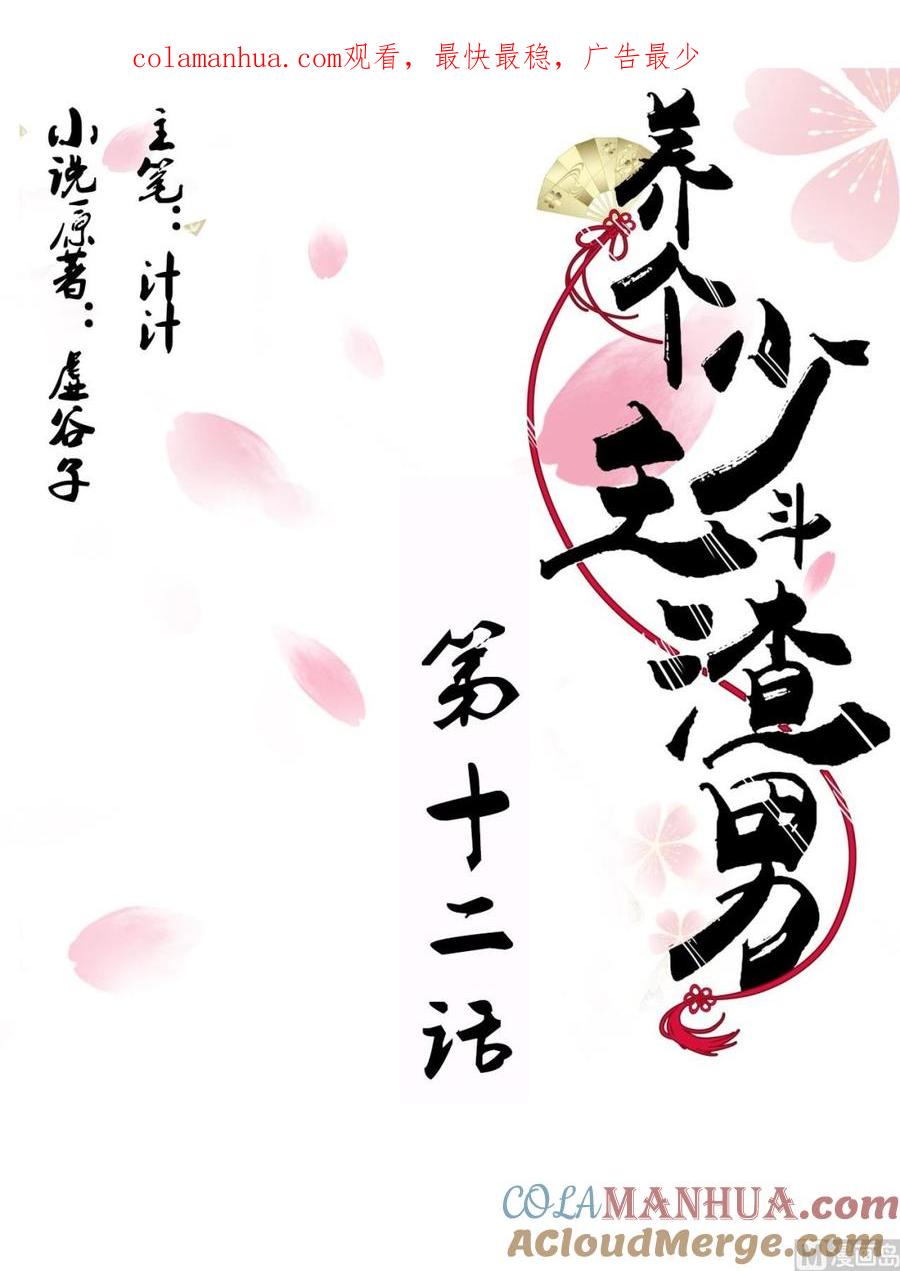 colamanhua.com观看，最快最稳，广告最少
养个少主斗渣男
第十二话
主笔：计计
小说原著：虚谷子
COLAMANHUA.com
ACloudMerge.com
M漫画岛